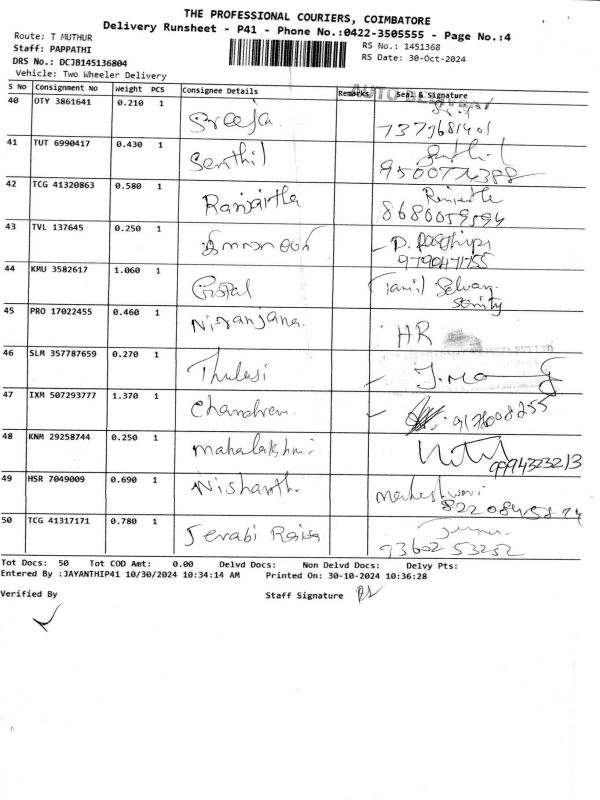 THE PROFESSIONAL COURIERS, COIMBATORE
Delivery Runsheet - P41 - Phone No.:0422-3505555 - Page No.:4
Route: T MUTHUR
Staff: PAPPATHI
DRS No.: DCJB145136804
Vehicle: Two Wheeler Delivery
RS No.: 1451368
RS Date: 30-Oct-2024
S No Consignment No Weight PCS Consignee Details Remarks Seal & Signature
40 OTY 3861641 0.210 1 Sreeja.
41 TUT 6990417 0.430 1 Senthil
9500774388
42 TCG 41320863 0.580 1 Ranjaitha
8680059594
43 TVL 137645 0.250 1
9790471755
44 KMU 3582617 1.060 1 Gopal Tamil Selvan
45 PRO 17022455 0.460 1 Niranjana HR
46 SLM 357787659 0.270 1 Thulasi
47 IXM 507293777 1.370 1 Chandran
48 KNM 29258744 0.250 1 Mahalakshmi
9994323213
49 HSR 7049009 0.690 1 Nishanth. Maheshwari
50 TCG 41317171 0.780 1
93602 53252
Tot Docs: 50 Tot COD Amt: 0.00 Delvd Docs: Non Delvd Docs: Delvy Pts:
Entered By :JAYANTHIP41 10/30/2024 10:34:14 AM Printed On: 30-10-2024 10:36:28
Verified By Staff Signature